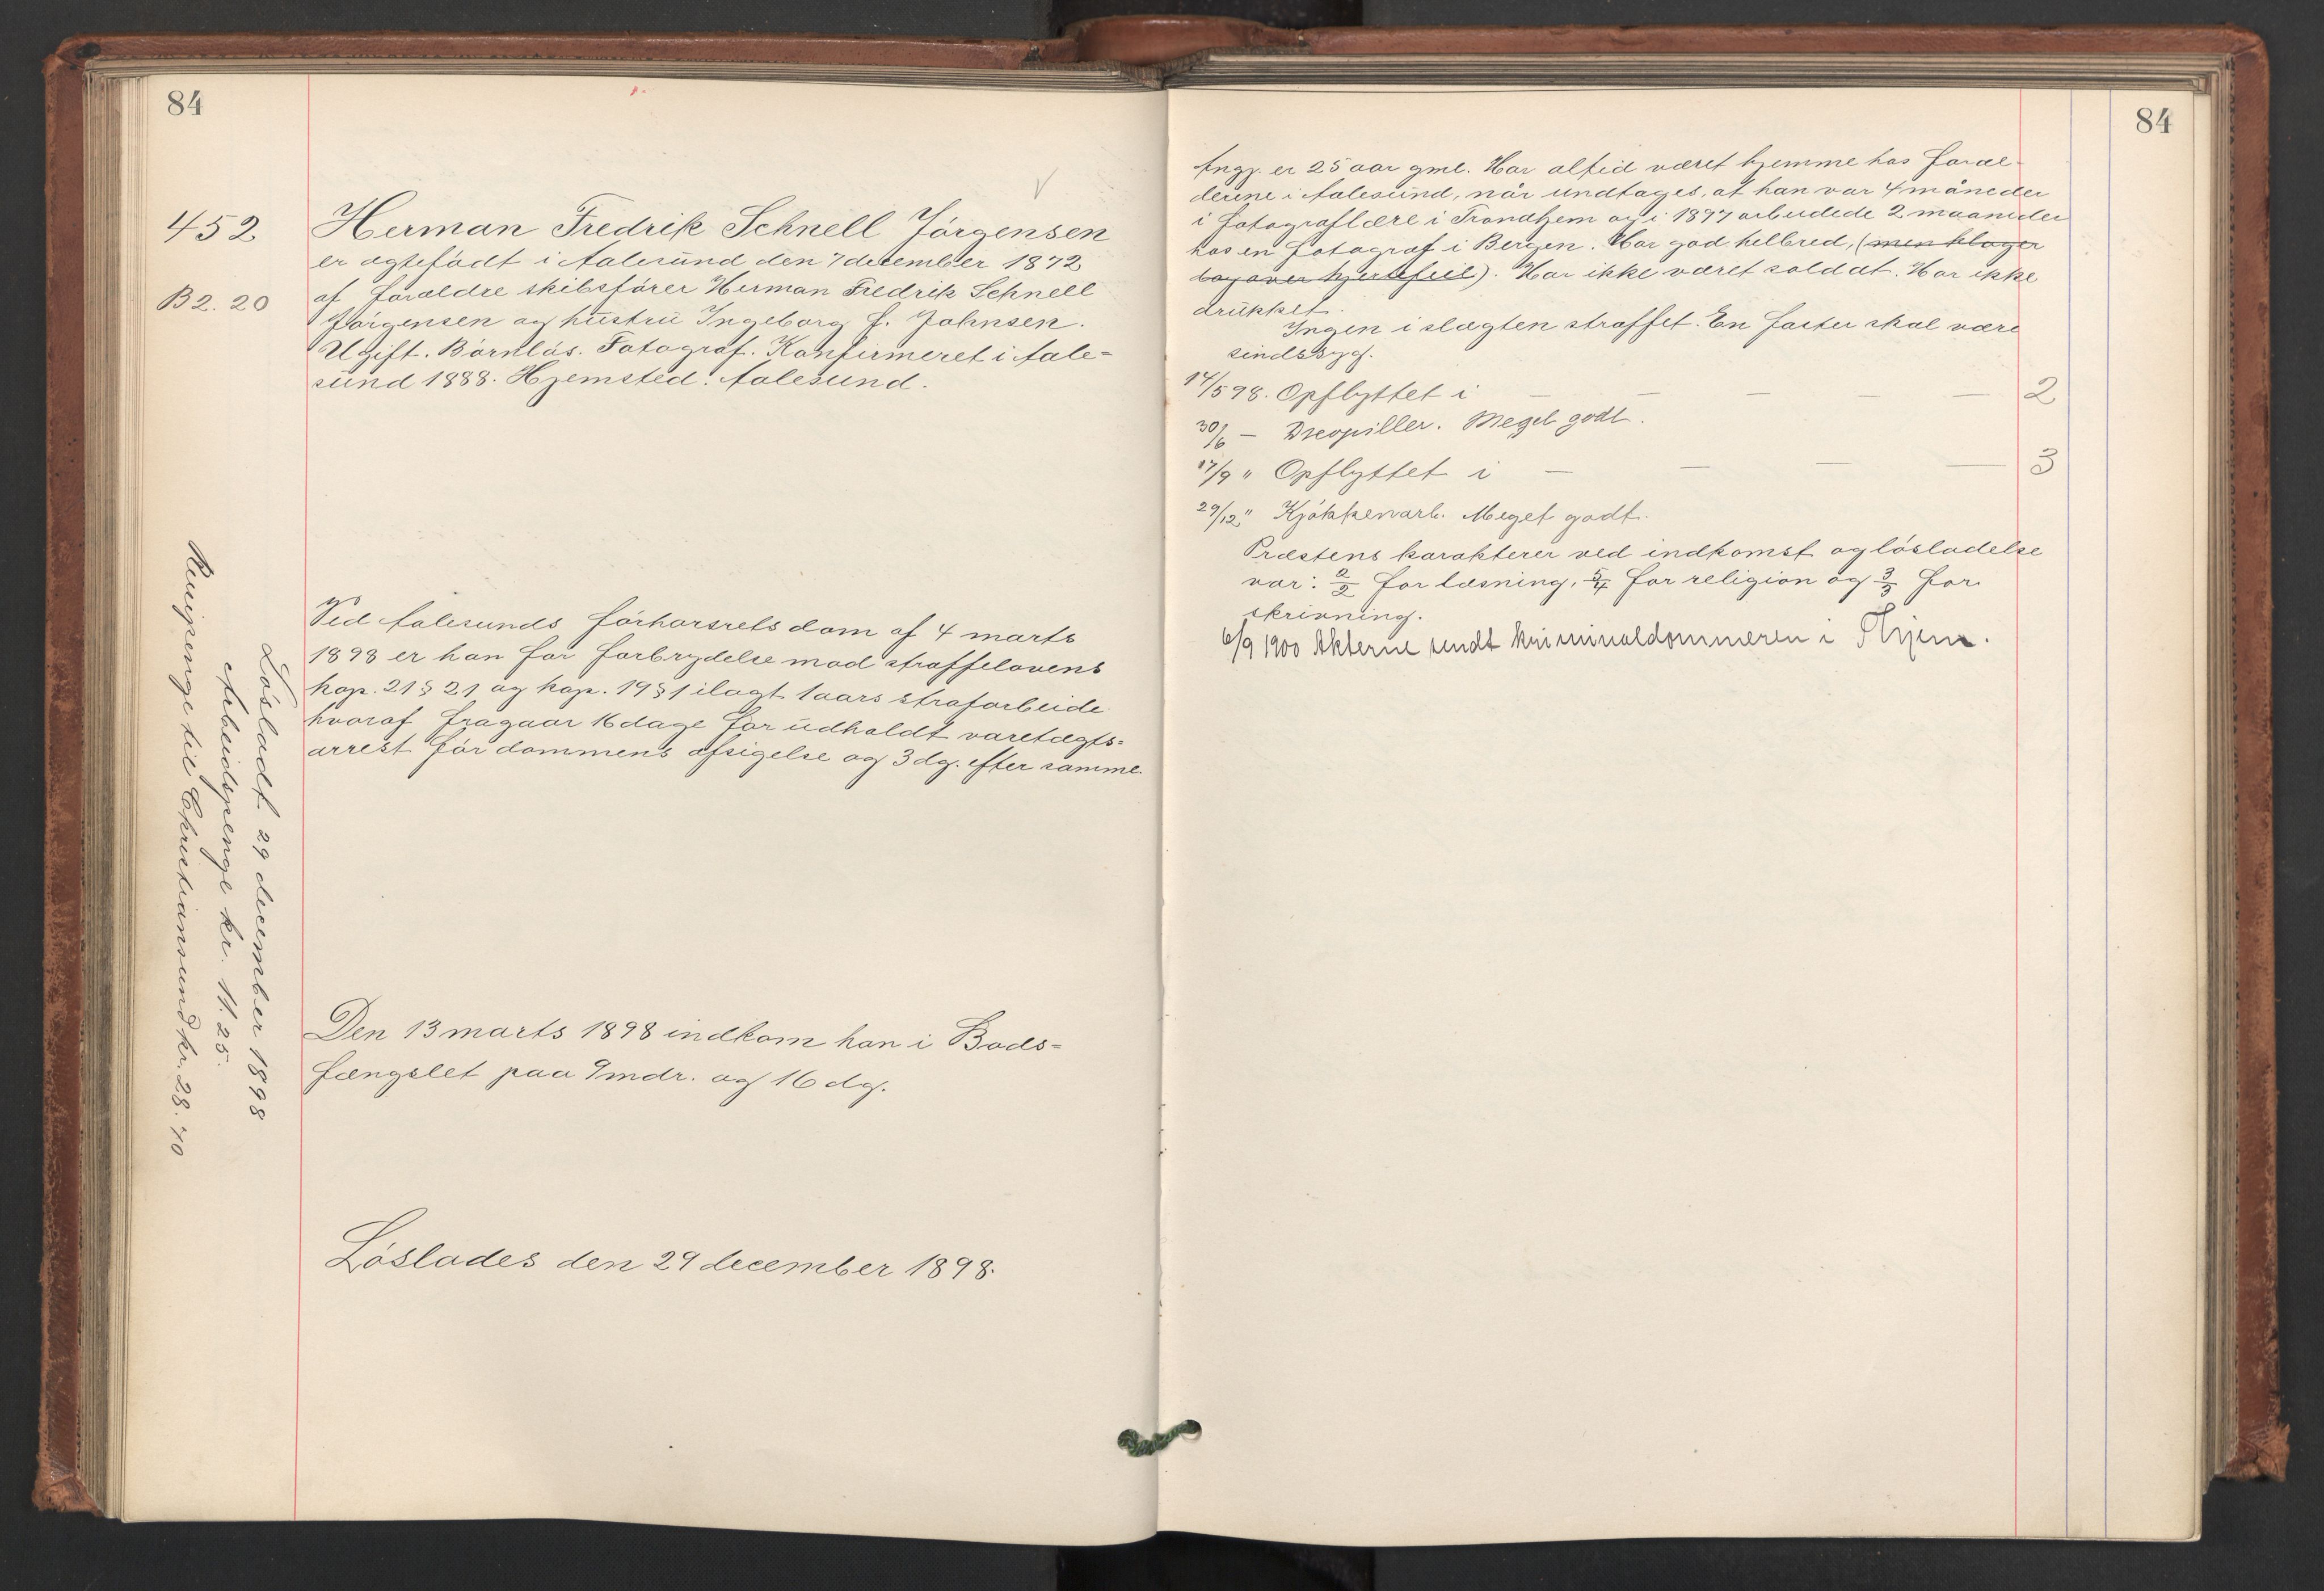 84
452
B 2. 20
Herman Fredrik Schnell Jörgensen
er ægtefödt i Aalesund den 7 december 1872
af forældre skibsförer Herman Fredrik Schnell
Jörgensen og hustru Ingeborg J. Johnsen.
Ugift. Barnlös. Fotograf. Konfirmeret i Aale=
sund 1888. Hjemsted: Aalesund.
Ved Aalesunds förhörsrets dom af 4 marts
1898 er han for forbrydelse mod straffelovens
kap. 21 § 21 og kap. 19 § 1 ilagt 1 aars strafarbeide
hvoraf fragaar 16 dage for udholdt varetægts=
arrest för dommens afsigelse og 3 dg. efter samme.
Den 13 marts 1898 indkom han i Bods=
fængslet paa 9 mdr. og 16 dg.
Löslades den 29 december 1898.
Lösladt 29 december 1898
Arbeidspenge kr. 11.25.
Reisepenge til Christiansund kr. 28.70
84
Angj. er 25 aar gml. Har altid været hjemme hos foræl-
drene i Aalesund, når undtages, at han var 4 måneder
i fotograflære i Trondhjem og i 1897 arbeidede 2 maaneder
hos en fotograf i Bergen. Har god helbred, (men klager
dog over hjertefeil). Har ikke været soldat. Har ikke
drukket.
Ingen i slægten straffet. En faster skal være
sindssyg.
14/5 98. Opflyttet i — — — — 2
30/6 — Meget godt.
17/9 " Opflyttet i — — — — 3
29/12 " Kjökkenarb. Meget godt.
Præstens karakterer ved indkomst og lösladelse
var: 2/2 for læsning, 5/4 for religion og 3/3 for
skrivning.
6/9 1900 Akterne sendt kriminaldommeren i Thjem.